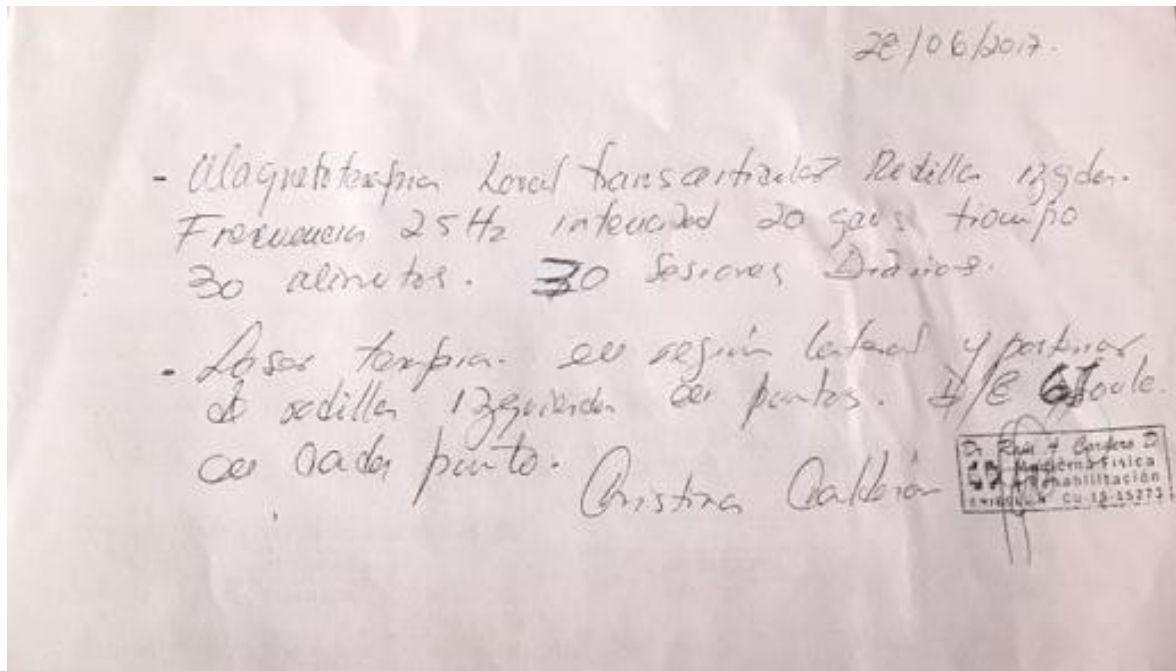 28/06/2017.
- Magnetoterapia Local transarticular Rodilla izqda.
Frecuencia 25Hz intensidad 20 gaus tiempo
30 Minutos. 30 Sesiones Diarios.
- Laser terapia. en región lateral y posterior
de rodilla izquierda en puntos. 6 Joule.
en cada punto.
Cristina Calderón
Dr. Raúl A Cordero D
Medicina Física
Rehabilitación